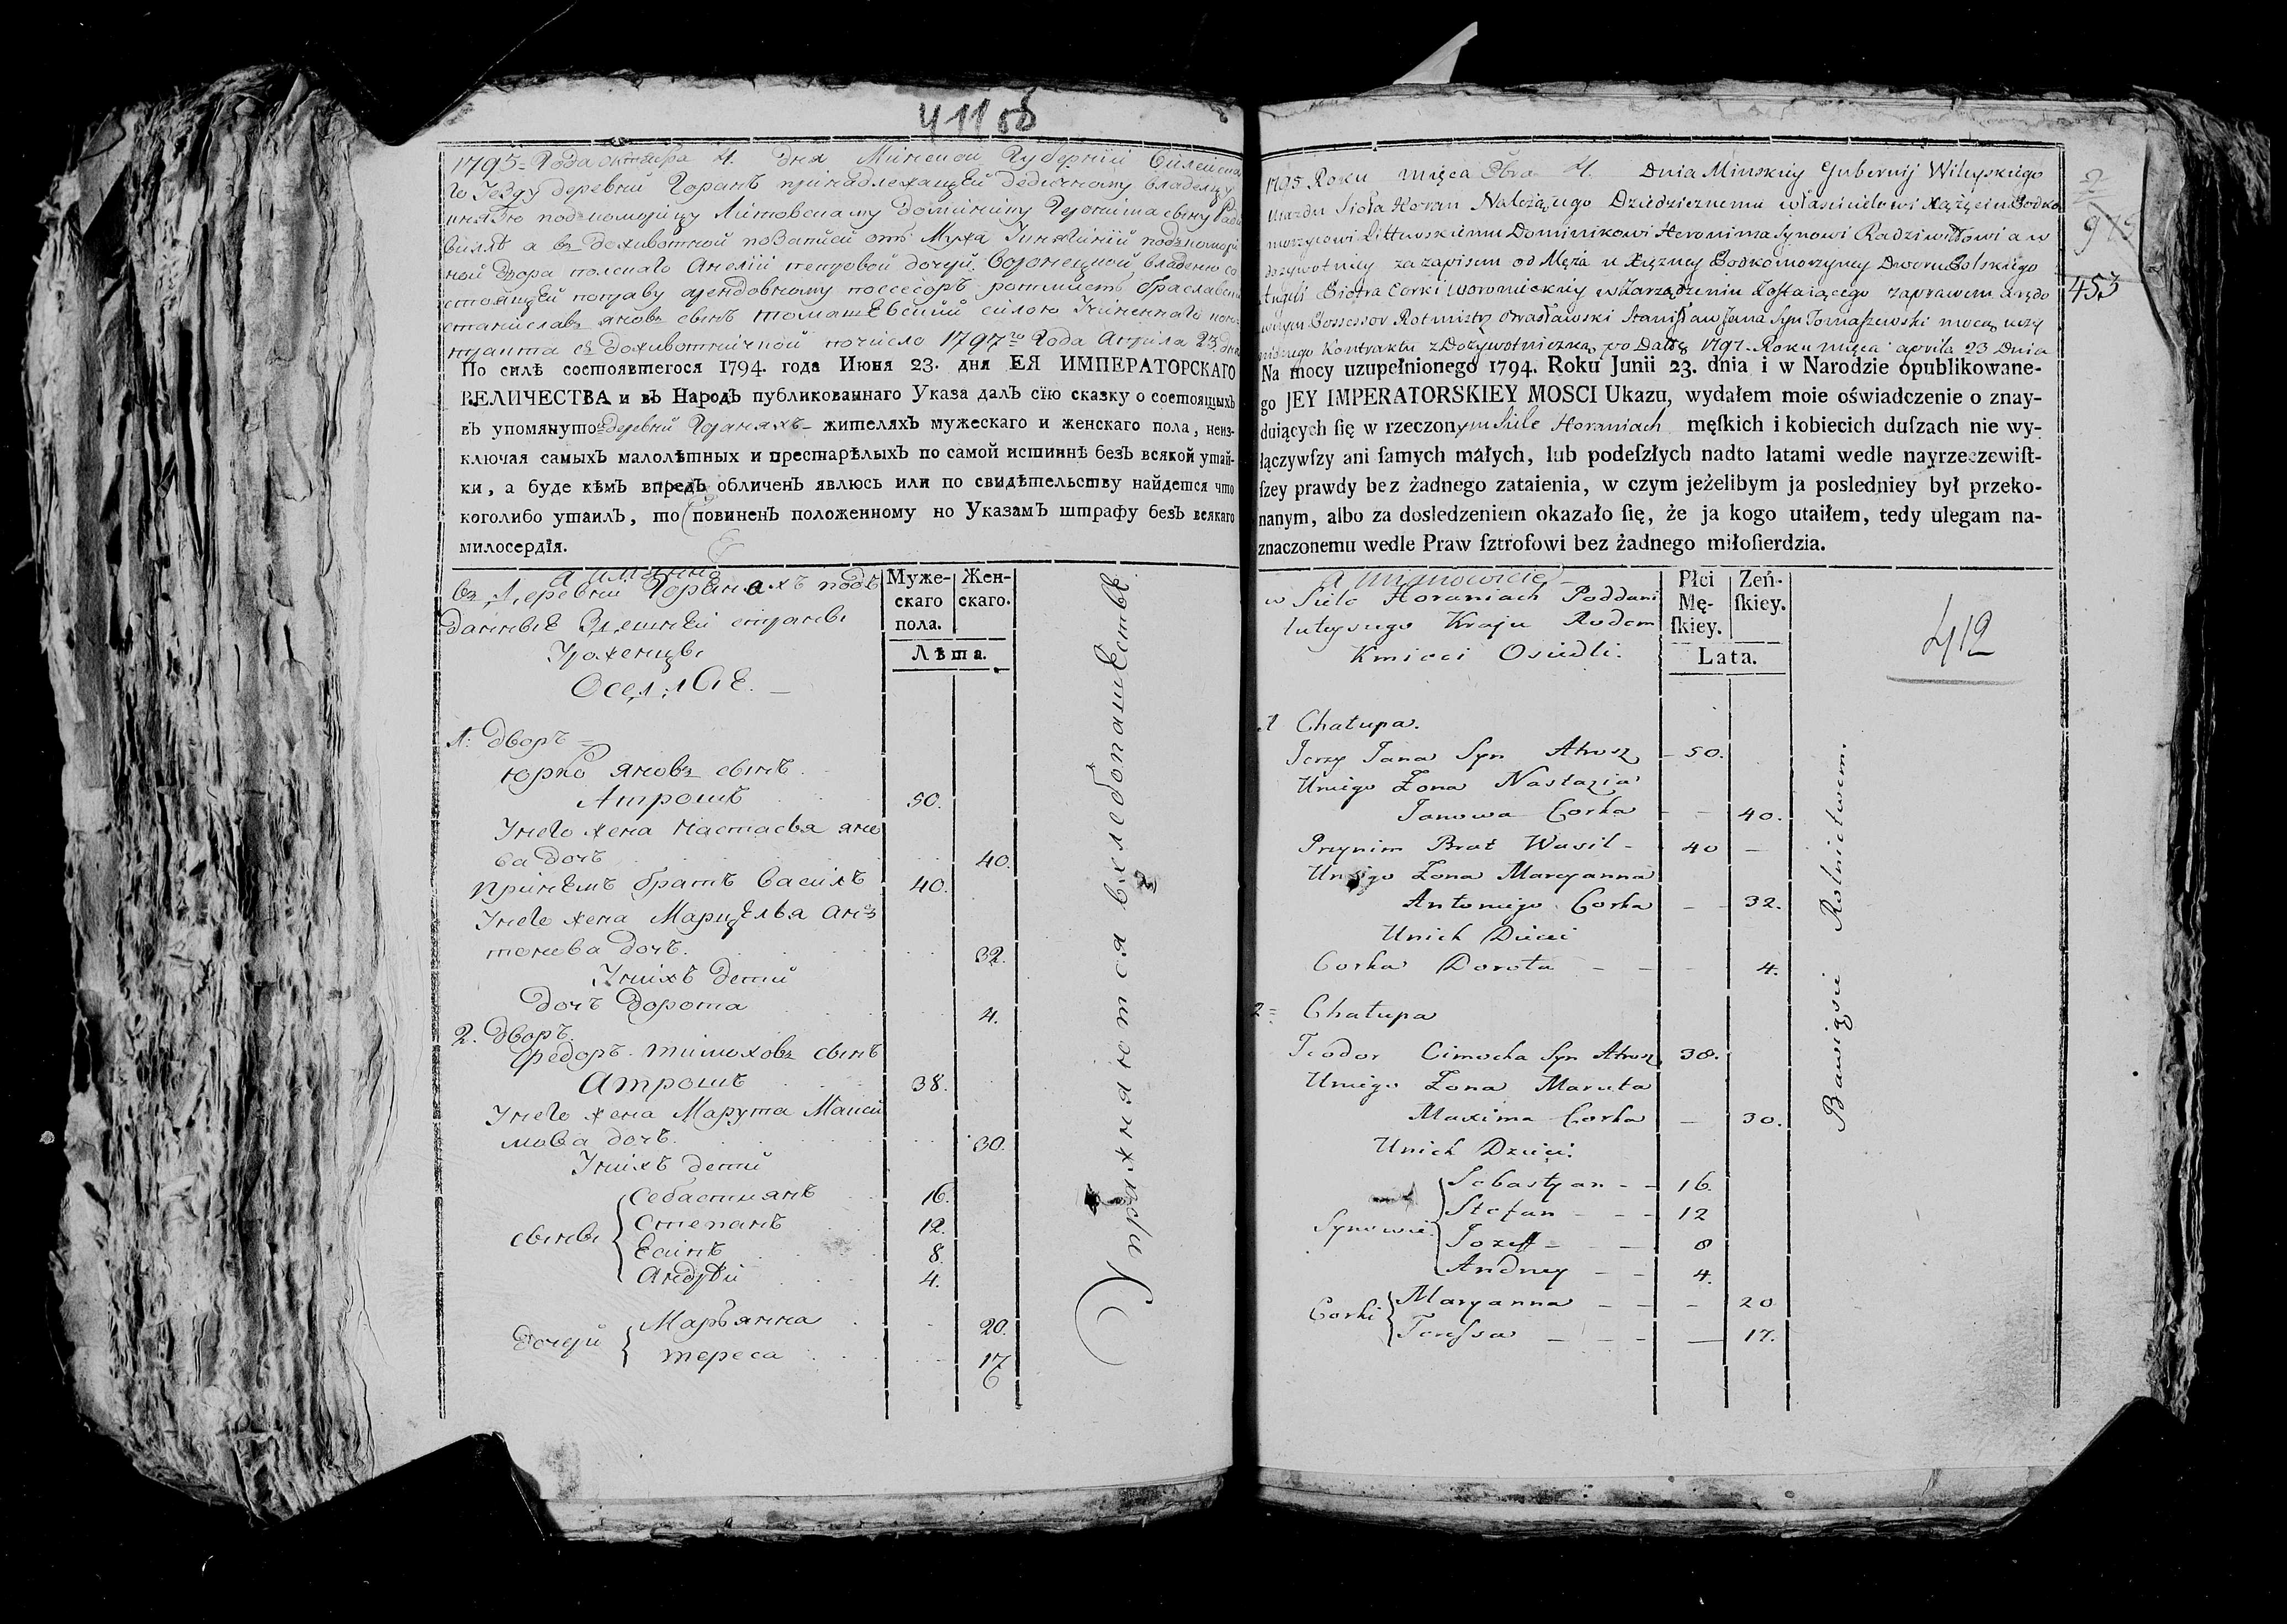 411 об
1795 = Года октября 4. дня Минской Губернии Вилейска
го Уезду деревни Горанъ принадлежащей дедичному владелцу
князю подкоморицу Литовскому Доминику Геронима сыну Радзи
вилъ а въ доживотной по записи отъ мужа княгини подкомори
ной двора полскаго Анелии петровой дочери владению со
стоящей по праву арендовному поссесоръ ротмистръ браславски
станиславъ яновъ сынъ томашевский силою учиненнаго кон
тракта съ доживотничкой по число 1797го Года Априла 23 дня
По силѣ состоявшегося 1794. года Июня 23. дня ЕЯ ИМПЕРАТОРСКАГО
ВЕЛИЧЕСТВА и въ Народъ публикованнаго Указа далъ сїю сказку о состоящыхъ
въ упомянутой деревни Гораняхъ жителяхъ мужескаго и женскаго пола, неиз-
ключая самыхъ малолѣтныхъ и престарѣлыхъ по самой истиннѣ безъ всякой утай-
ки, а буде кѣмъ впредь обличенъ явлюсь или по свидѣтельству найдется что
коголибо утаилъ, то повиненъ положенному по Указамъ штрафу безъ всякаго
милосердїя.
а имянно
въ Деревни Горанахъ подъ
данные Здешней страны
Уроженцы
Оселлые.
Муже-
скаго
пола.
Жен-
скаго.
Лѣта.
1: дворъ =
юрко яновъ сынъ
Атрошъ 50.
У него жена настасья яно
ва дочь 40.
принемъ братъ василь 40.
У него жена Марцеля ан
тонова дочь. 32.
У нихъ дети
дочъ дорота 4.
2. дворъ.
федоръ тимоховъ сынъ
атрошъ 38.
У него жена Марута Макси
мова дочь. 30.
У нихъ дети
сыны { себастианъ 16.
степанъ 12.
Есипъ 8.
андрѣй 4.
дочери { Марьянна 20.
тереса 17
Упражняются в хлебопашестве
1795 Roku mięca 8bra 4. Dnia Minskiy Gubernij Wileyskiego
Uiazdu Sioła Horan Należącego Dziedzicznemu właścicielowi Xążęciu Podko
morzycowi Littewskiemu Dominikowi Heronima Synowi Radziwiłłowi a w
dożywotniey za zapisem od Męża u Xiężney Podkomorzyney Dworu Polskiego
Angeli Piotra Corki w Zarządzeniu Zostaiącego zaprawem arędo
wnym Possessor Rotmistrz Brasławski Stanisław Jana Syn Tomaszewski mocą uczy
nionego Kontraktu z Dożywotniczką po Datę 1797. Roku mięca aprila 23 Dnia
Na mocy uzupełnionego 1794. Roku Junii 23. dnia i w Narodzie opublikowane-
go JEY IMPERATORSKIEY MOSCI Ukazu, wydałem moie oświadczenie o znay-
duiących ſię w rzeczonym Siele Horaniach męſkich i kobiecich duſzach nie wy-
łączywſzy ani ſamych małych, lub podeſzłych nadto latami wedle nayrzeczewiſt-
ſzey prawdy bez żadnego zataienia, w czym jeżelibym ja posledniey był przeko-
nanym, albo za dosledzeniem okazało ſię, że ja kogo utaiłem, tedy ulegam na-
znaczonemu wedle Praw ſztrofowi bez żadnego miłoſierdzia.
453
a mianowicie
w Siele Horaniach Poddani
tuteyszego Kraju Rodem
Kmieci Osiedli.
Płci
Mę-
ſkiey.
Zeń-
ſkiey.
Lata.
412
1 Chałupa.
Jerzy Jana Syn Atrosz 50.
Uniego Żona Nastazia
Janowa Corka 40.
Przynim Brat Wasil 40
Uniego Żona Maryanna
Antoniego Corka 32.
Unich Dzieci
Corka Dorota 4.
2 = Chałupa
Teodor Cimocha Syn Atrosz 38.
Uniego Żona Maruta
Maxima Corka 30.
Unich Dzieci.
Synowie { Sebastyan 16.
Stefan 12
Jozeff 8
Andrzey 4.
Corki { Maryanna 20
Teressa 17.
Bawiącsie Rolnictwem.